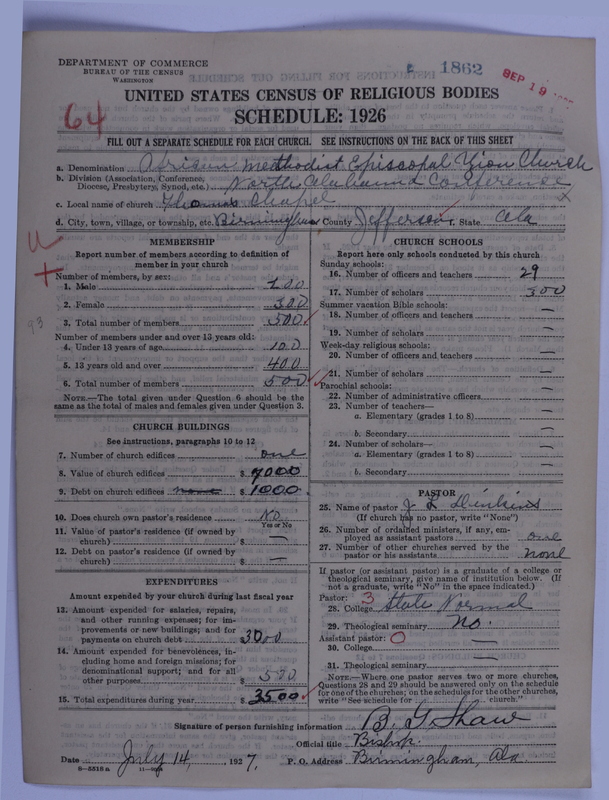 DEPARTMENT OF COMMERCE
BUREAU OF THE CENSUS
WASHINGTON
1862
SEP 19
64
UNITED STATES CENSUS OF RELIGIOUS BODIES
SCHEDULE: 1926
FILL OUT A SEPARATE SCHEDULE FOR EACH CHURCH. SEE INSTRUCTIONS ON THE BACK OF THIS SHEET
a. Denomination African Methodist Episcopal Zion Church
b. Division (Association, Conference, Diocese, Presbytery, Synod, etc.) North Alabama Conference
c. Local name of church Thomas Chapel
x
d. City, town, village, or township, etc. Birmingham County Jefferson f. State Ala
MEMBERSHIP
Report number of members according to definition of
member in your church:
Number of members, by sex:
1. Male 200
2. Female 300
3. Total number of members 500
93
Number of members under and over 13 years old:
4. Under 13 years of age 100
5. 13 years old and over 400
6. Total number of members 500
NOTE.—The total given under Question 6 should be the
same as the total of males and females given under Question 3.
CHURCH BUILDINGS
See instructions, paragraphs 10 to 12
7. Number of church edifices one
8. Value of church edifices $ 7000
9. Debt on church edifices none $ 1000
10. Does church own pastor's residence No
Yes or No
11. Value of pastor's residence (if owned by
church) $ —
12. Debt on pastor's residence (if owned by
church) $ —
EXPENDITURES
Amount expended by your church during last fiscal year
13. Amount expended for salaries, repairs,
and other running expenses; for im-
provements or new buildings; and for
payments on church debt $ 3000
14. Amount expended for benevolences, in-
cluding home and foreign missions; for
denominational support; and for all
other purposes $ 500
15. Total expenditures during year $ 3500
CHURCH SCHOOLS
Report here only schools conducted by this church
Sunday schools:
16. Number of officers and teachers 29
17. Number of scholars 300
Summer vacation Bible schools:
18. Number of officers and teachers —
19. Number of scholars —
Week-day religious schools:
20. Number of officers and teachers —
21. Number of scholars —
Parochial schools:
22. Number of administrative officers —
23. Number of teachers—
a. Elementary (grades 1 to 8) —
b. Secondary —
24. Number of scholars—
a. Elementary (grades 1 to 8) —
b. Secondary —
PASTOR
25. Name of pastor J L Dinkins
(If church has no pastor, write "None")
26. Number of ordained ministers, if any, em-
ployed as assistant pastors one
27. Number of other churches served by the
pastor or his assistants none
If pastor (or assistant pastor) is a graduate of a college or
theological seminary, give name of institution below. (If
not a graduate, write "No" in the space indicated.)
Pastor: 3
28. College State Normal
29. Theological seminary No.
Assistant pastor: 0
30. College —
31. Theological seminary —
NOTE.—Where one pastor serves two or more churches,
Questions 28 and 29 should be answered only on the schedule
for one of the churches; on the schedules for the other churches,
write "See schedule for church."
Signature of person furnishing information B. G. Shaw
Official title Bishop
Date July 14, 1927. P. O. Address Birmingham, Ala